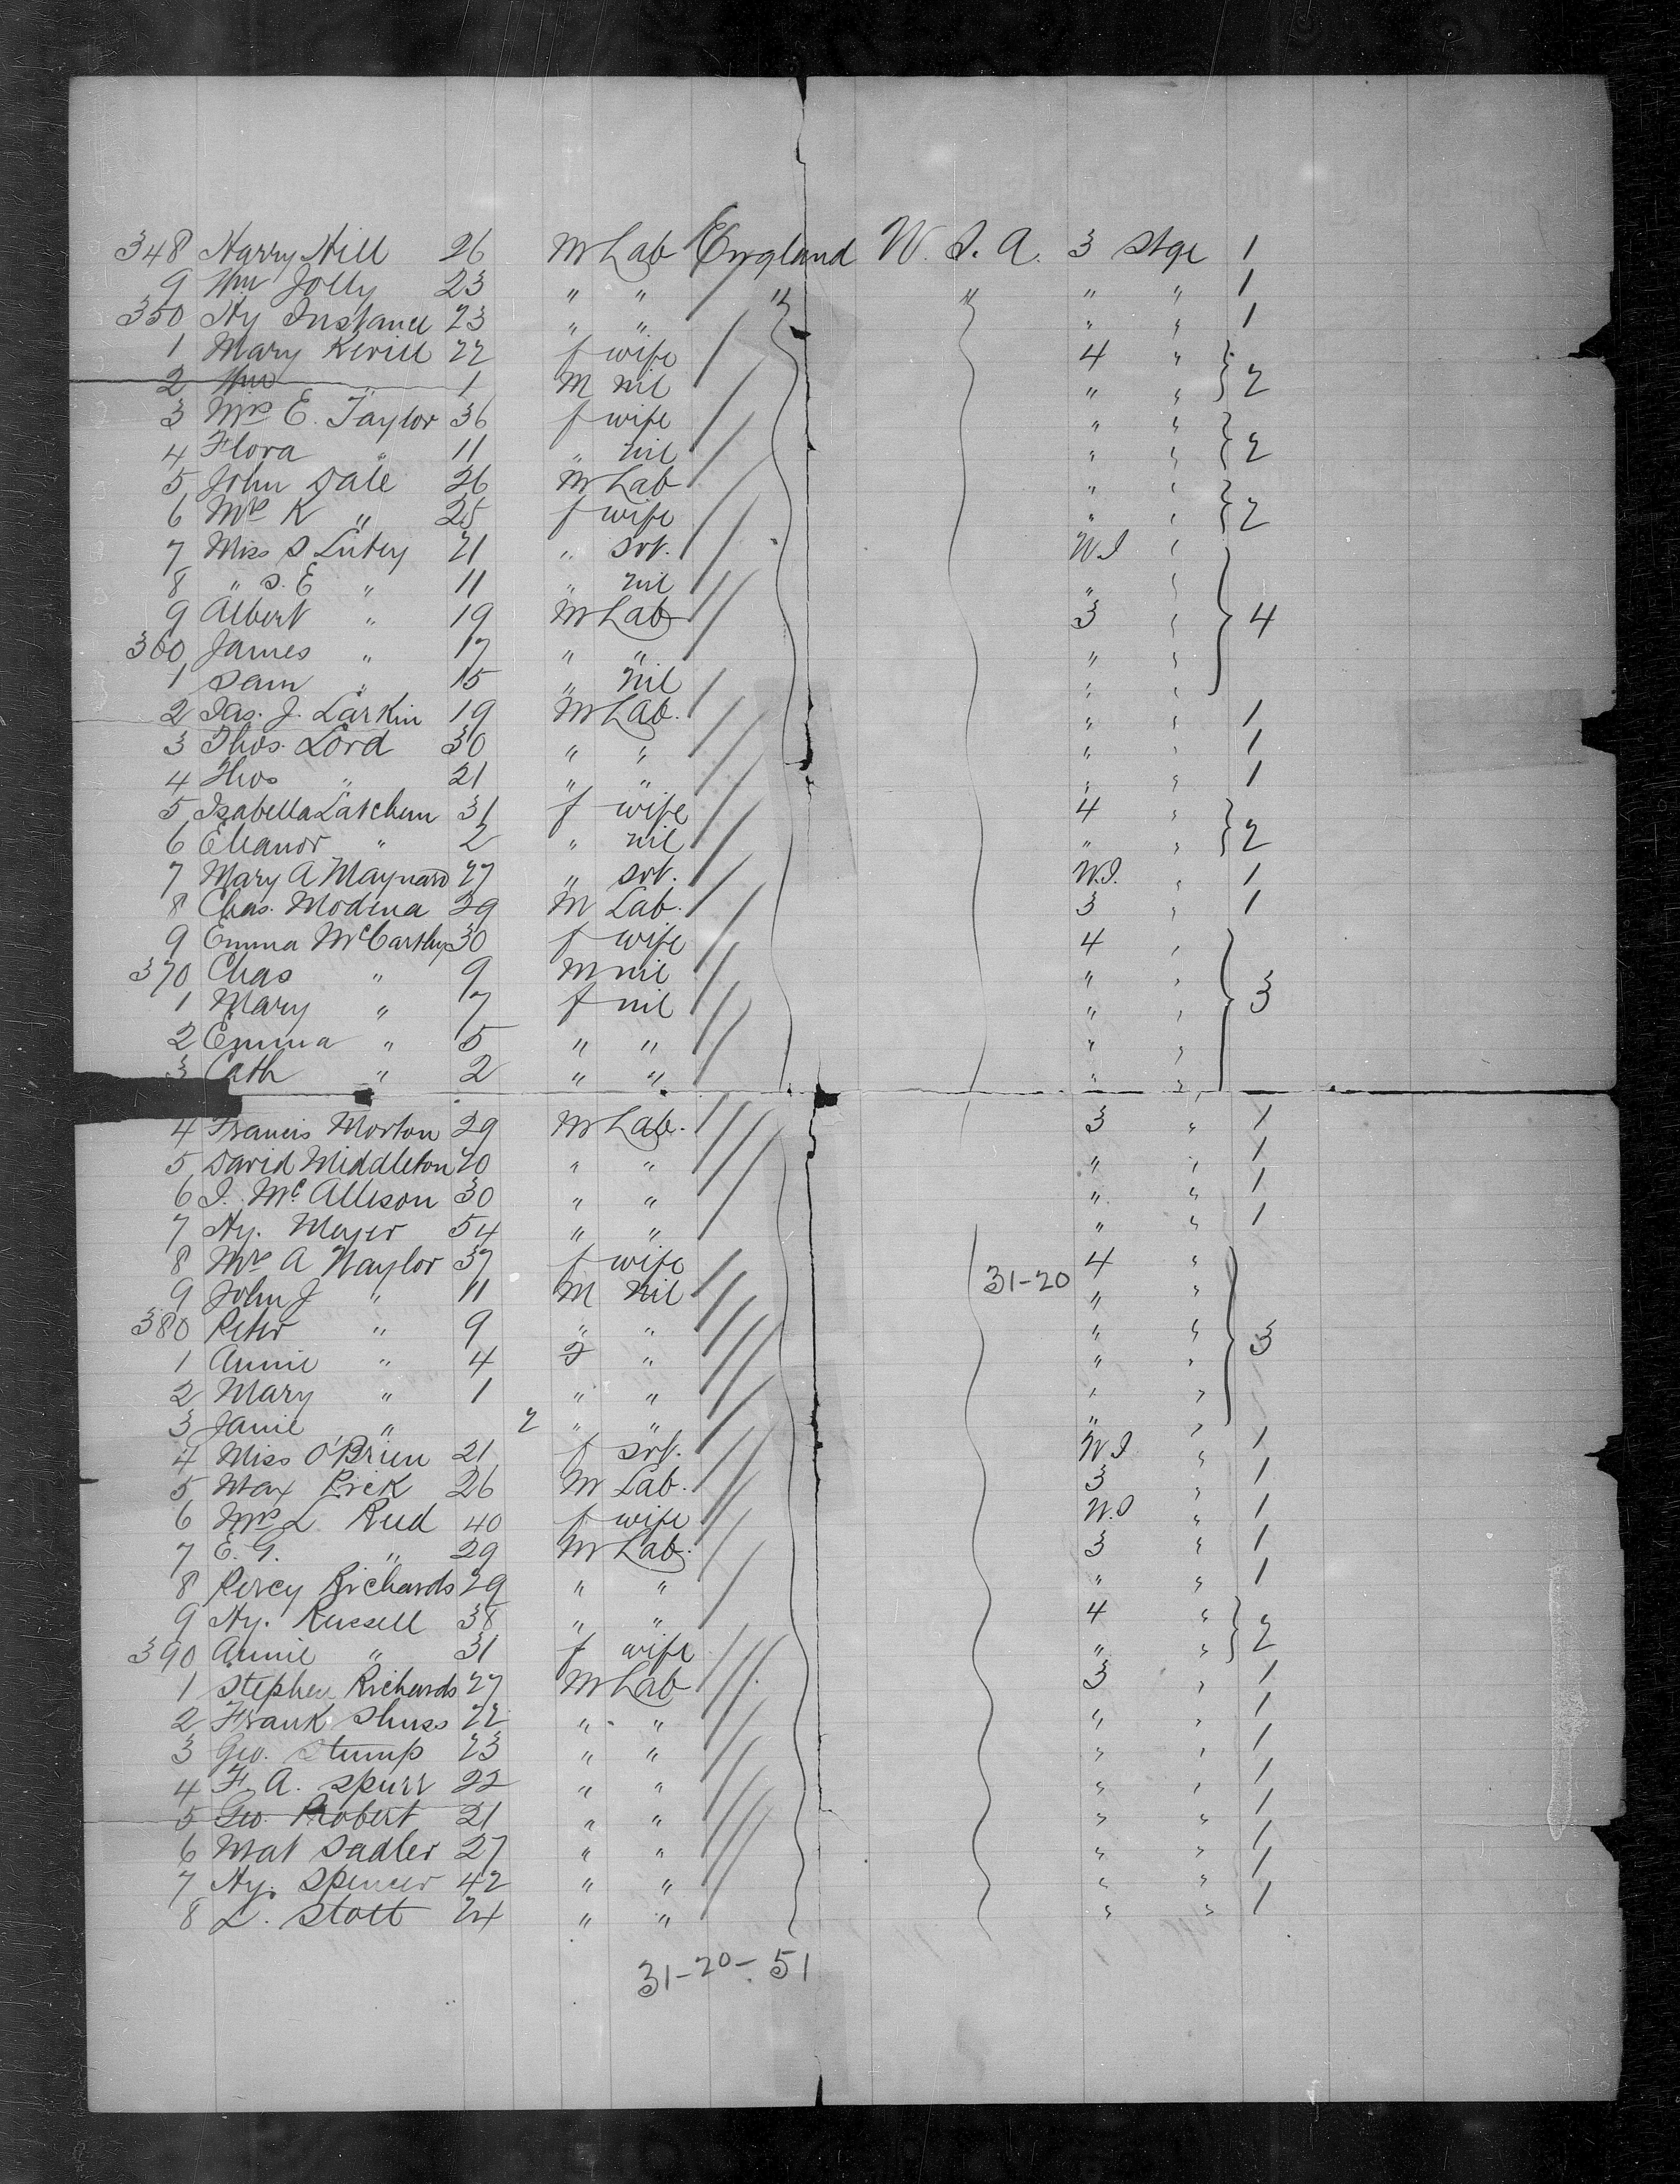 348 Harry Hill 26 M Lab England U.S.A. 3 Stge 1
9 Wm Jolly 23 " " " " " " 1
350 Hy Instance 23 " " " " 1
1 Mary Kevill 22 f wife 4 " 2
2 Wm " 1 M nil " "
3 Mrs E. Taylor 36 f wife " " 2
4 Flora " 11 " nil " "
5 John Dale 26 M Lab " " 2
6 Mrs K " 25 f wife " "
7 Miss S Lutey 21 " Svt. W.I " 4
8 " S. E " 11 " nil " "
9 Albert " 19 M Lab 3 "
360 James " 17 " " " "
1 Sam " 15 " nil " "
2 Jas. J. Larkin 19 M Lab. " " 1
3 Thos. Lord 30 " " " " 1
4 Thos " 21 " " " " 1
5 Isabella Latchem 31 f wife 4 " 2
6 Eleanor " 2 " nil " "
7 Mary A Maynard 27 " Svt. W.I. " 1
8 Chas. Modina 29 M Lab. 3 " 1
9 Emma McCarthy 30 f wife 4 " 3
370 Chas " 9 M nil " "
1 Mary " 7 f nil " "
2 Emma " 5 " " " "
3 Cath " 2 " " " "
4 Francis Morton 29 M Lab. 3 " 1
5 David Middleton 20 " " " " 1
6 J. McAllison 30 " " " " 1
7 Hy. Meyer 54 " " " " 1
8 Mrs A Naylor 37 f wife 4 " 3
9 John J " 11 M nil 31-20 " "
380 Peter " 9 " " " "
1 Annie " 4 f " " "
2 Mary " 1 " " " "
3 Janie " 2 " " " "
4 Miss O'Brien 21 f Svt. W.I " 1
5 Max Pick 26 M Lab. 3 " 1
6 Mrs L Reed 40 f wife W.I " 1
7 E. G. " 29 M Lab. 3 " 1
8 Percy Richards 29 " " " " 1
9 Hy. Russell 38 " " 4 " 2
390 Annie " 31 f wife " "
1 Stephen Richards 27 M Lab 3 " 1
2 Frank 22 " " " " 1
3 Geo. Stump 23 " " " " 1
4 F. A. Spurr 22 " " " " 1
5 Geo. Probert 21 " " " " 1
6 Mat Sadler 27 " " " " 1
7 Hy. Spencer 42 " " " " 1
8 L. Stott 24 " " " " 1
31-20-51